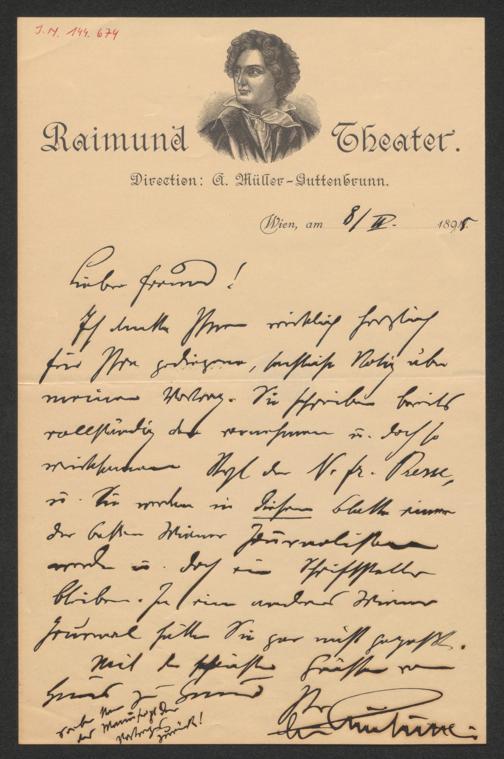 I.N. 144.674
Raimund Theater.
Direction: A. Müller-Guttenbrunn.
Wien, am 8/IV. 1895
Lieber Freund!
Ich danke Ihnen wirklich herzlich
für Ihre gediegene, Notiz über
meinen Vortrag. Sie schreiben bereits
vollständig den vornehmen u. doch so
wirksamen Styl der N. fr. Presse,
u. Sie werden in diesem Blatte einer
der besten Wiener Journalisten
werden u. doch ein Schriftsteller
bleiben. In ein anderes Wiener
Journal hätten Sie gar nicht gepaßt.
Mit Grüßen von
Haus zu Haus
Ihr
das Manuscript des
Vortrages
zurück!